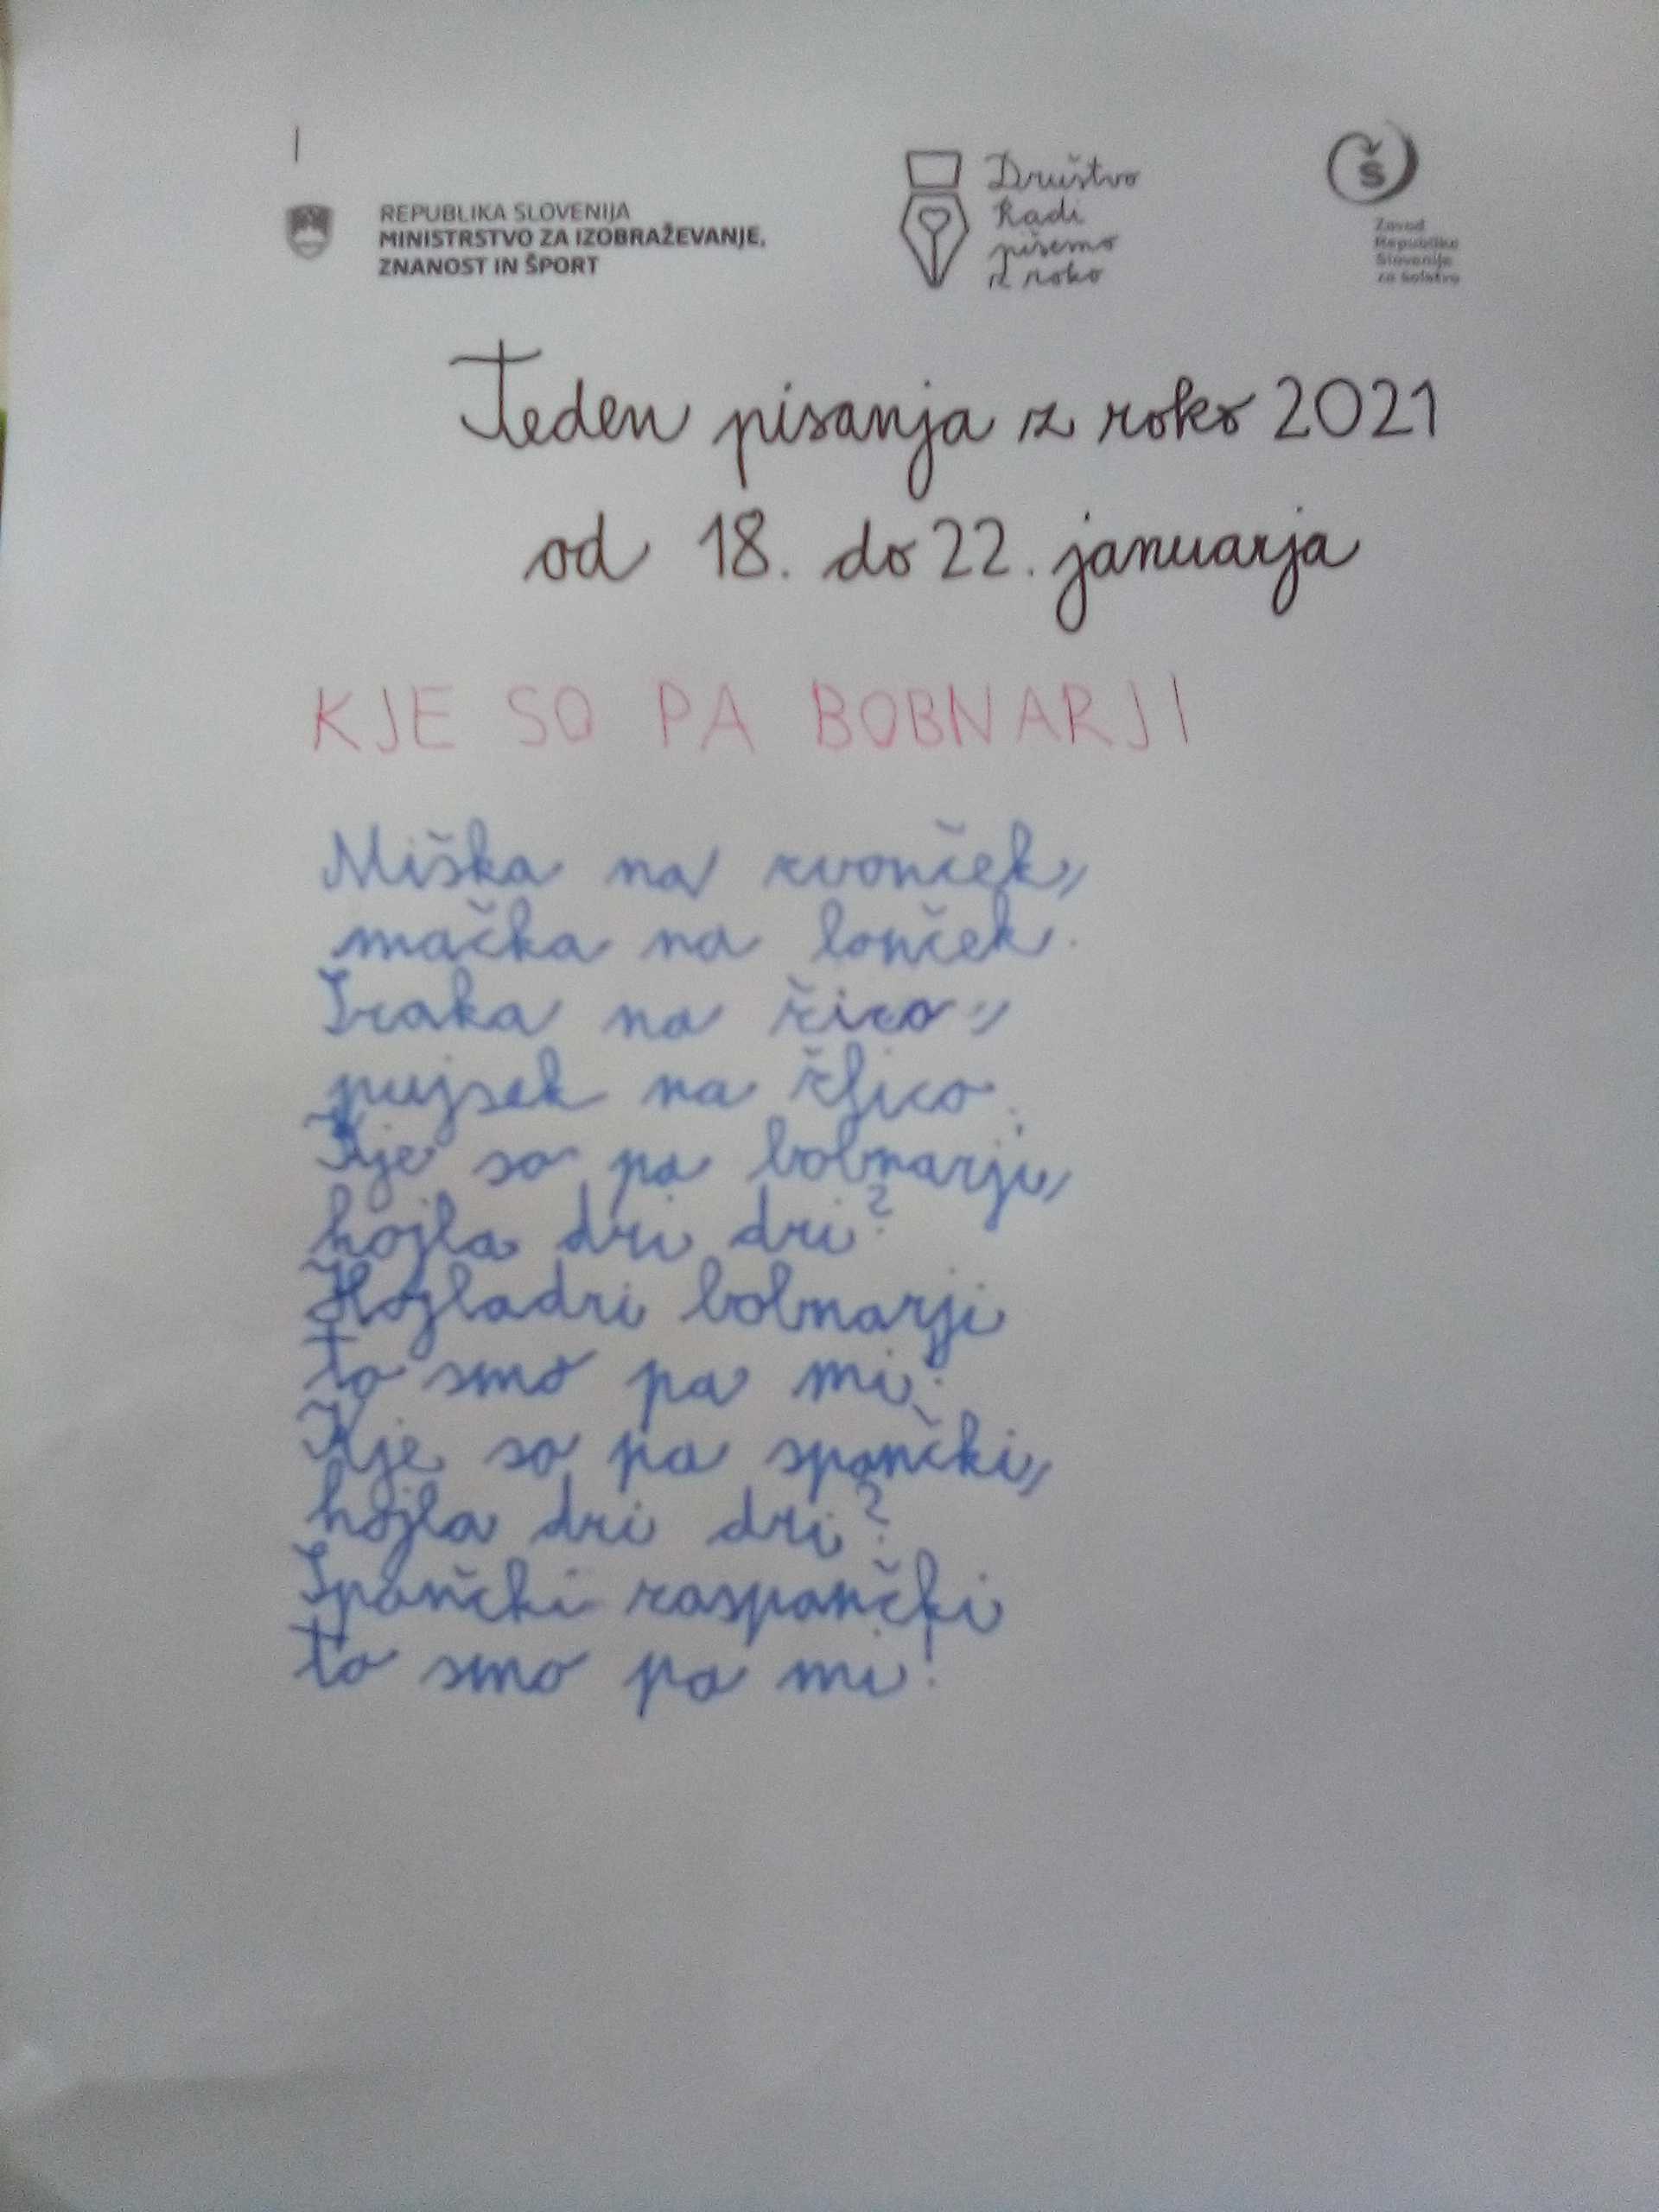 REPUBLIKA SLOVENIJA
MINISTRSTVO ZA IZOBRAŽEVANJE,
ZNANOST IN ŠPORT
Društvo
Radi
pišemo
z roko
Š
Zavod
Republike
Slovenije
za šolstvo
Teden pisanja z roko 2021
od 18. do 22. januarja
KJE SO PA BOBNARJI
Miška na zvonček,
mačka na lonček.
Sraka na žico,
pujsek na žlico.
Kje so pa bobnarji,
hojla dri dri?
Hojladri bobnarji
to smo pa mi!
Kje so pa spančki,
hojla dri dri?
Spančki zaspančki
to smo pa mi!